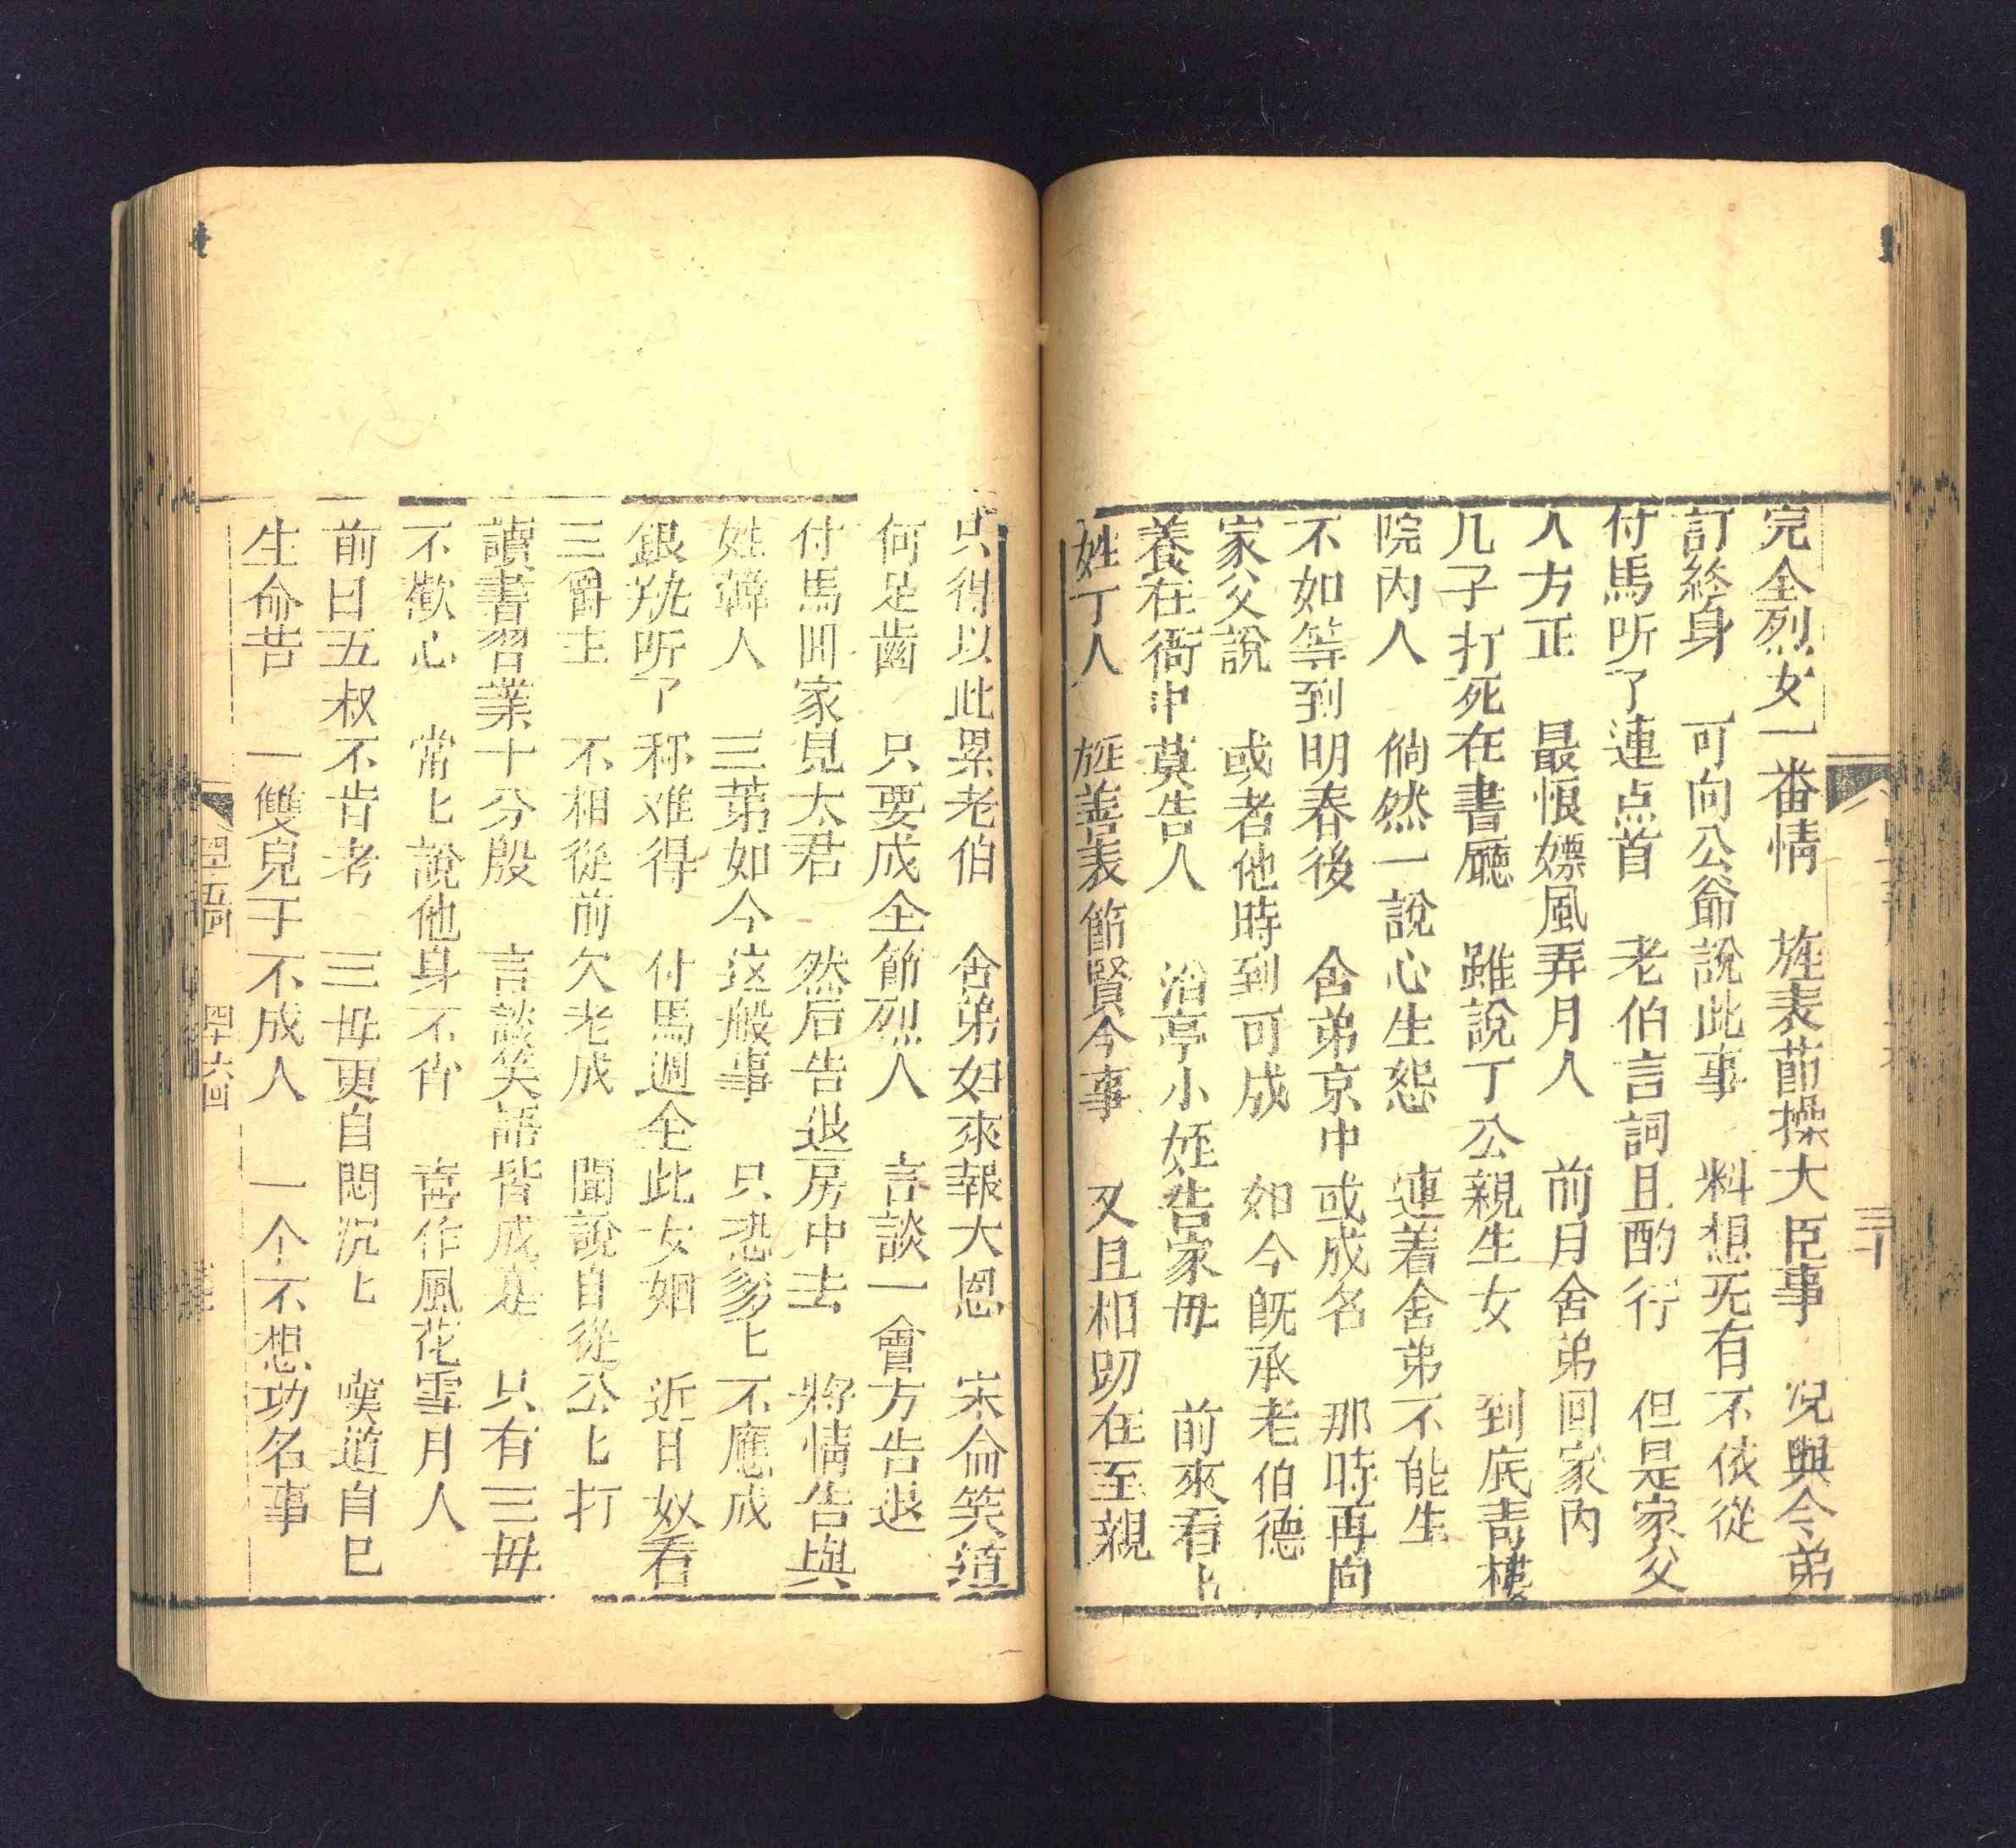 完全烈女一番情　旌表節操大臣事　况與令弟
訂終身　可向公爺說此事　料想旡有不依從
付馬听了連点首　老伯言詞且酌行　但是家父
人方正　最恨嫖風弄月人　前月舍弟回家內
几子打死在書廳　雖說丁公親生女　到底青樓
院內人　倘然一說心生怨　連着舍弟不能生
不如等到明春後　舍弟京中或成名　那時再向
家父說　或者他時到可成　如今旣承老伯德
養在衙中莫告人　治亭小姪告家毋　前來看上
姓丁人　旌善表節賢令事　又且相叨在至親
只得以此累老伯　舍弟妇來報大恩　宋侖笑道
何足齒　只要成全節烈人　言談一會方告退
付馬囬家見太君　然后告退房中去　將情告與
姓韓人　三苐如今这般事　只恐爹上不應成
銀㚁听了称难得　付馬週全此女姻　近日奴看
三爵主　不相從前欠老成　聞說自從公上打
讀書習業十分殷　言談笑語皆成是　只有三毋
不歡心　常上說他身不肖　喜作風花雪月人
前日五叔不肯考　三毋更自悶沉上　嘆道自已
生侖苦　一雙兒子不成人　一个不想功名事
四十五囬　四十六回
三十